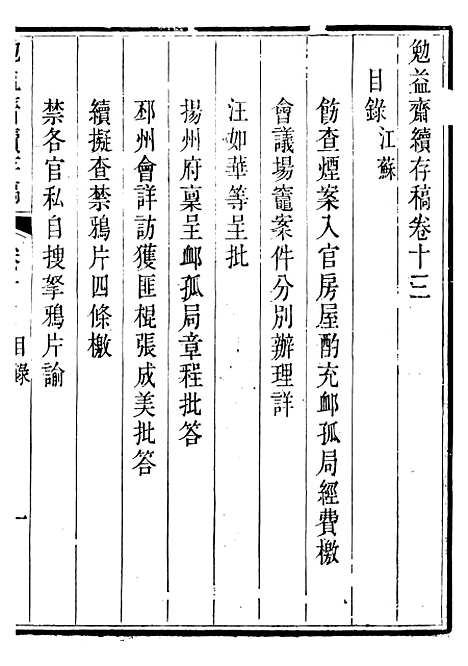 勉益齋續存稿卷十三
目錄 江蘇
飭查煙案入官房屋酌充卹孤局經費檄
會議場竈案件分別辦理詳
汪如華等呈批
揚州府稟呈卹孤局章程批答
邳州會詳訪獲匪棍張成美批答
續擬查禁鴉片四條檄
禁各官私自搜拏鴉片諭
目錄
一